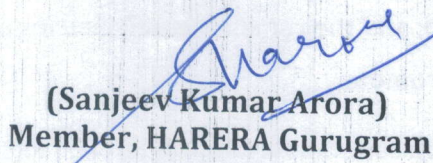 (Sanjeev Kumar Arora)
Member, HARERA Gurugram